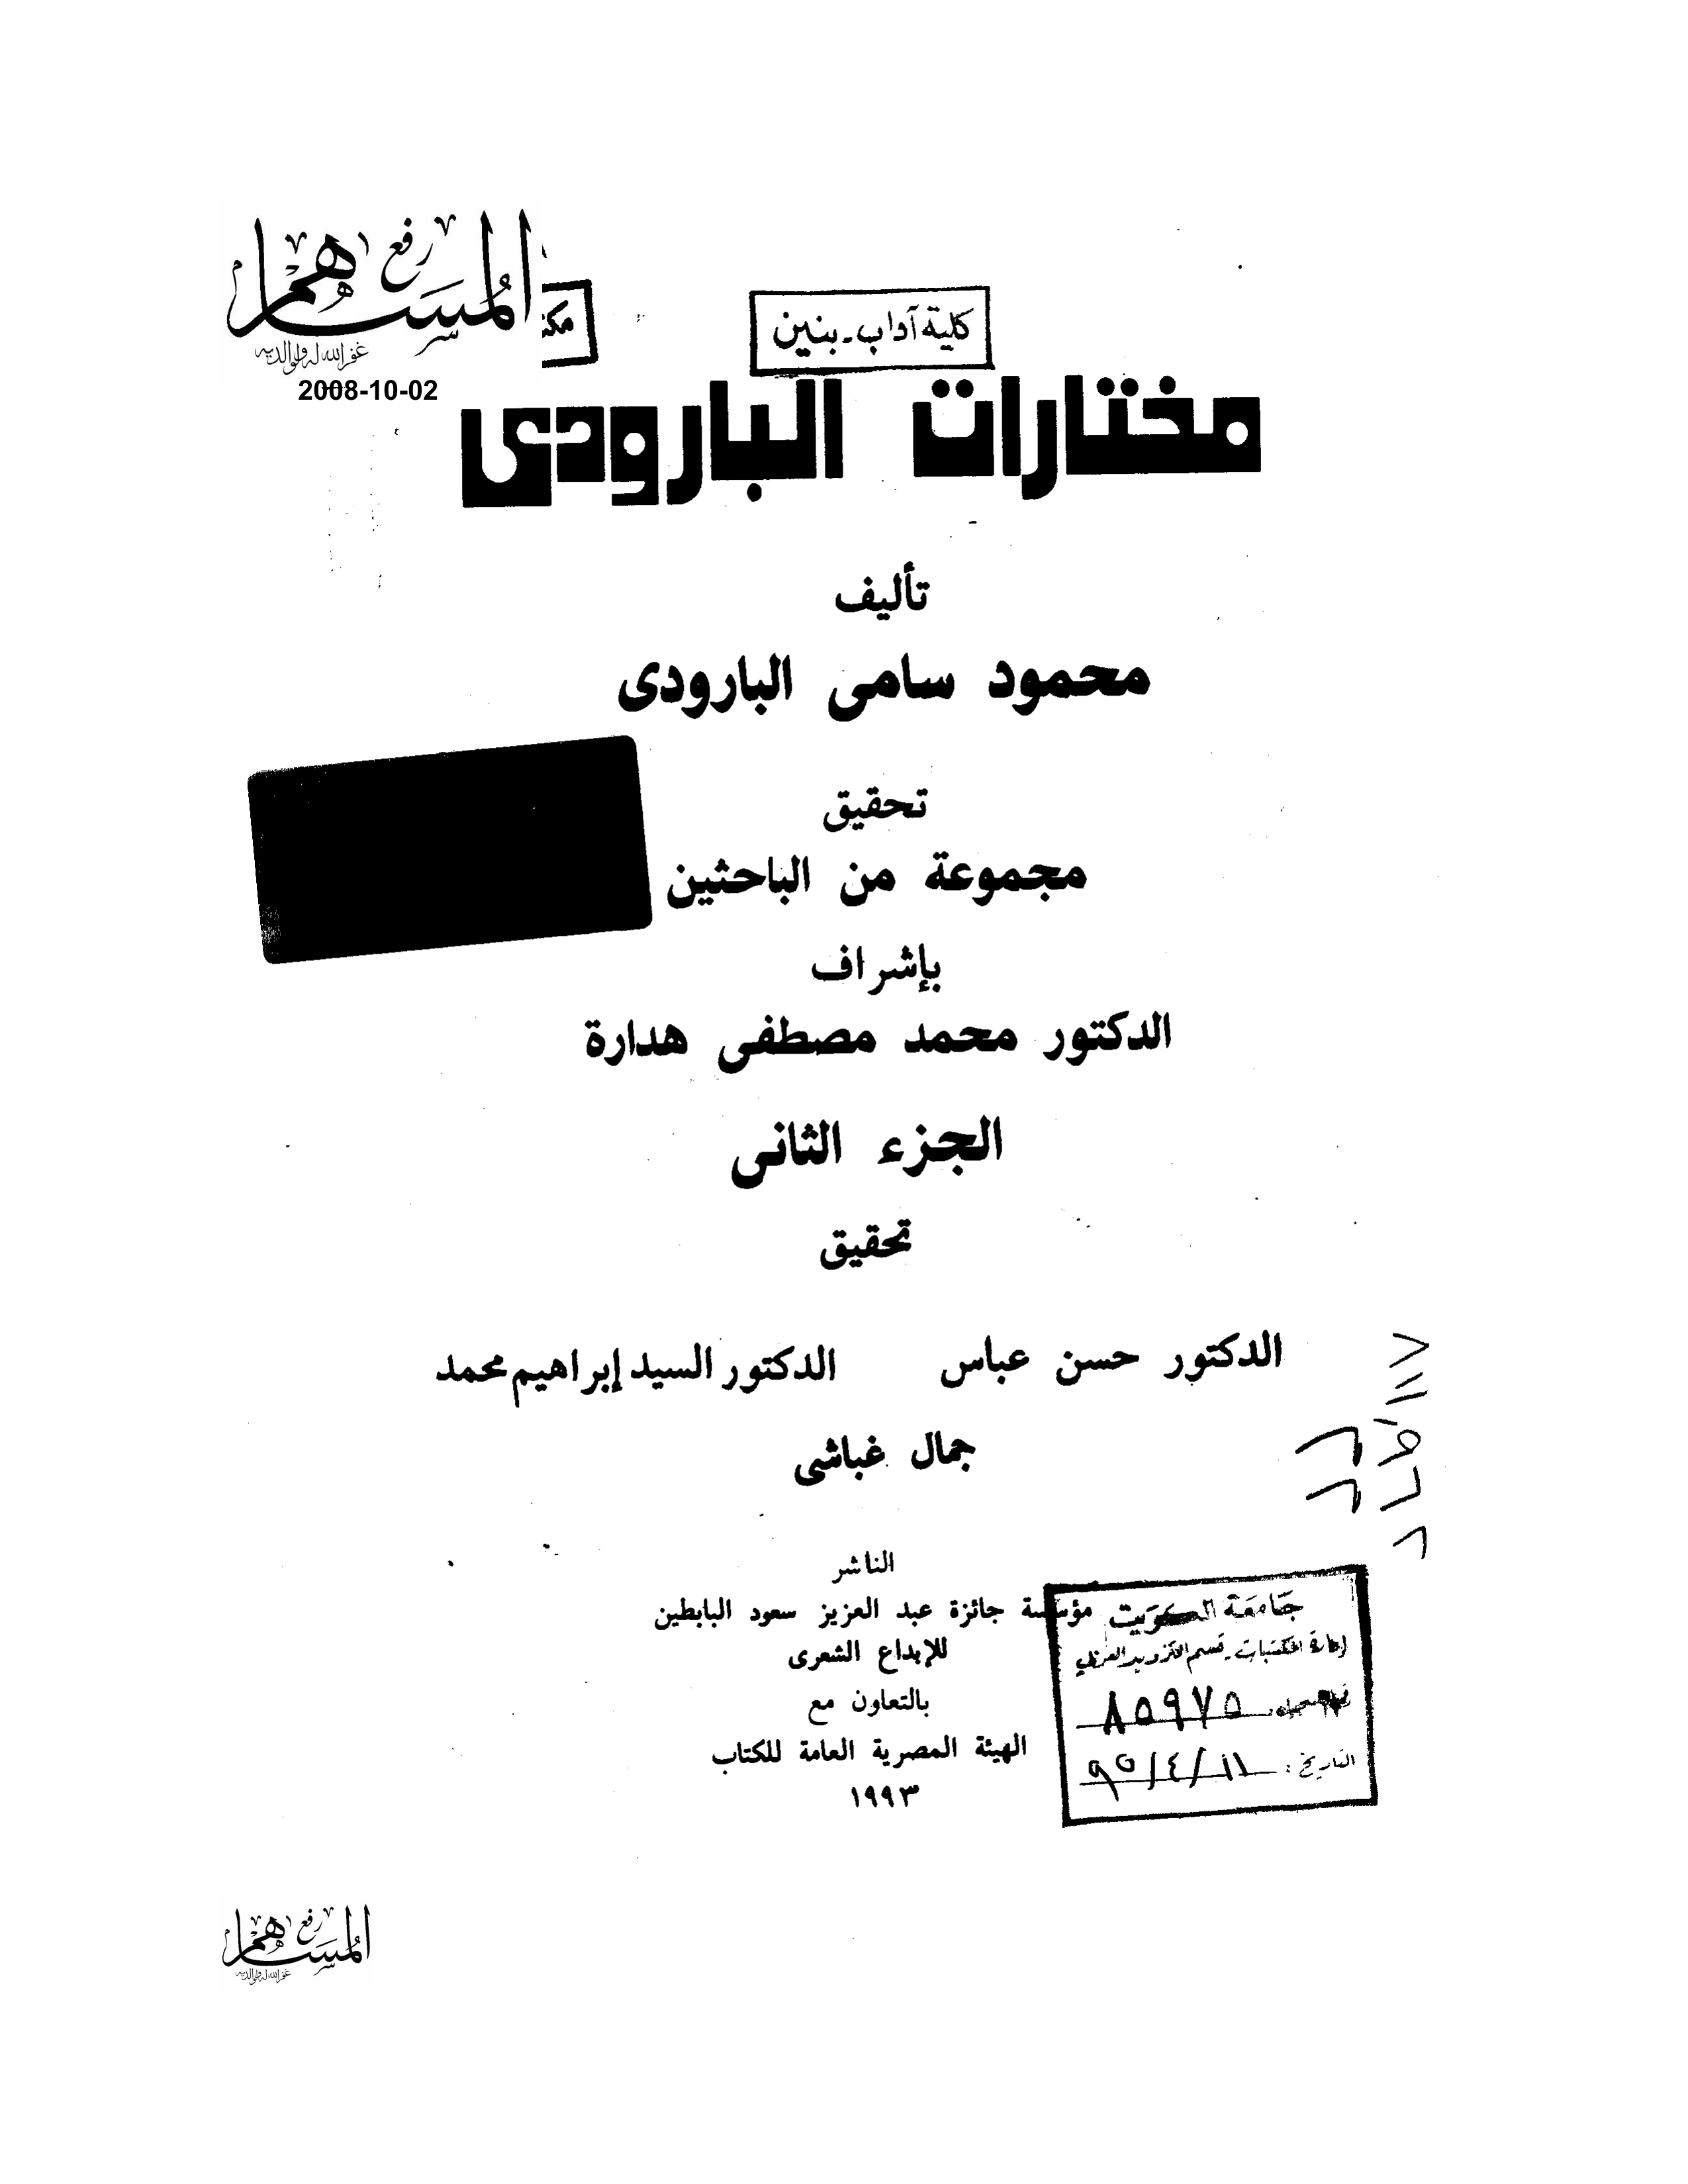 رفع
المساهم
غفر الله له ولوالديه
2008-10-02
كلية آداب - بنين
مختارات البارودى
تأليف
محمود سامى البارودى
تحقيق
مجموعة من الباحثين
بإشراف
الدكتور محمد مصطفى هدارة
الجزء الثانى
تحقيق
الدكتور حسن عباس الدكتور السيد إبراهيم محمد
جمال غباشى
الناشر
مؤسسة جائزة عبد العزيز سعود البابطين
للإبداع الشعرى
بالتعاون مع
الهيئة المصرية العامة للكتاب
١٩٩٣
جامعة الكويت
إدارة المكتبات - قسم التزويد العربي
٨٥٩٧٥
التاريخ : ١١/٤/٩٥
رفع
المساهم
غفر الله له ولوالديه